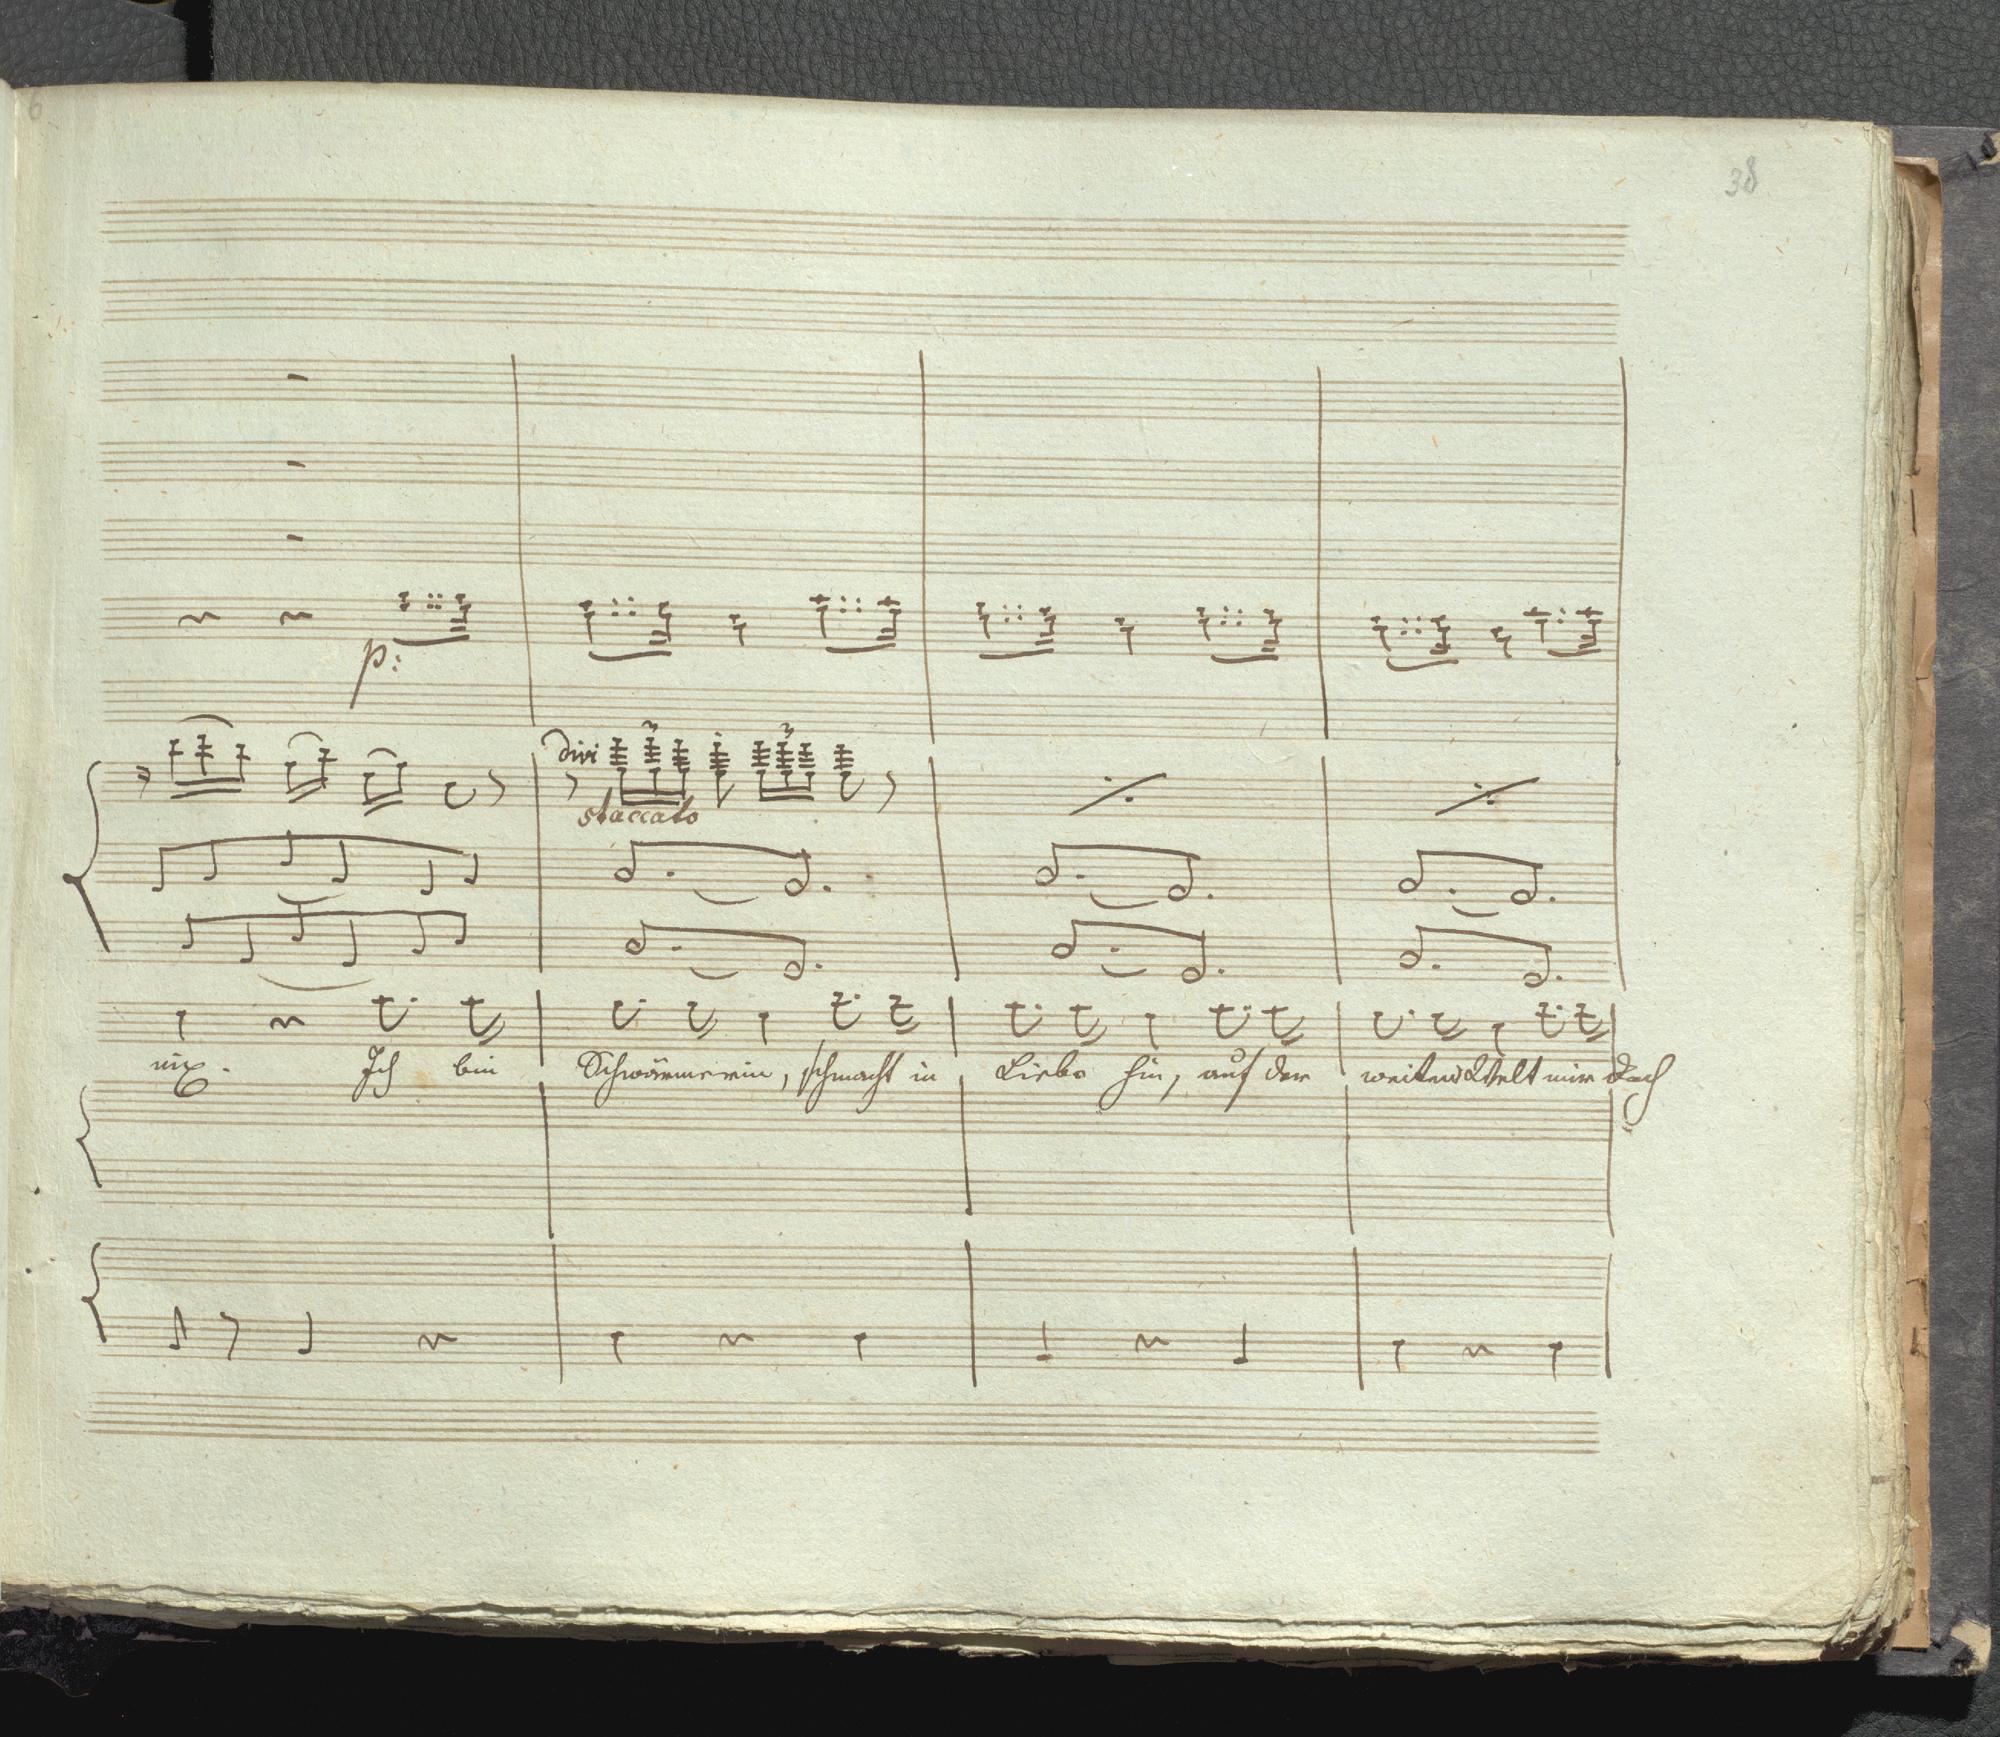 6
38
p:
divi 3 3
staccato
nix. Ich bin Schwärmerin, schmacht in Liebe hin, auf der weiten Welt mir